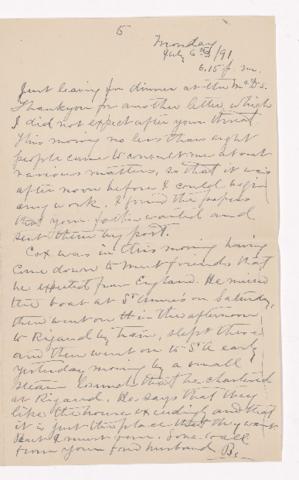 5
Monday
July 6th/91
6.15 p.m.
Just leaving for dinner at the McD's.
Thank you for another letter which
I did not expect after your threat
This morning no less than eight
people came to consult me about
various matters, so that it was
after noon before I could begin
any work. I found the papers
that your father wanted and
sent them by post.
Cox was in this morning having
come down to meet friends that
he expected from England. He missed
the boat at St Annes on Saturday,
then went on in the afternoon
to Rigaud by train, slept there
and then went on to St A early
yesterday morning by a small
steam launch that he chartered
at Rigaud. He says that they
like the house exceedingly and that
it is just the place that they want
But I must run. Love to all
from your fond husband